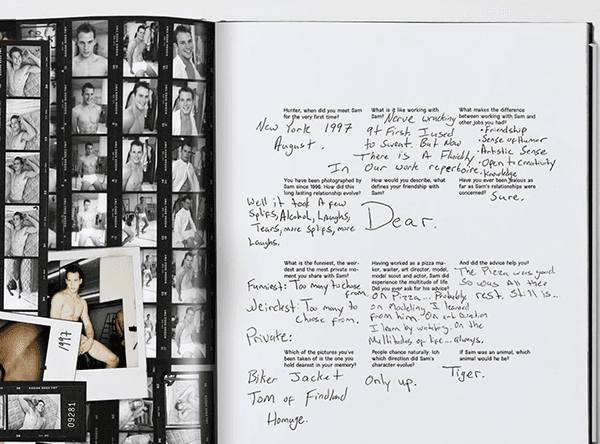 1997
09281
Hunter, when did you meet Sam
for the very first time?
New York 1997
August.
What is it like working with
Sam?
Nerve wracking
at First I used
to sweat. But Now
There is A Fluidity
In Our work repertoire.
What makes the difference
between working with Sam and
other jobs you had?
• Friendship
• Sense of Humor
• Artistic Sense
• Open to Creativity
• Knowledge
You have been photographed by
Sam since 1996. How did this
long lasting relationship evolve?
Well it took A few
Splifs, Alcohol, Laughs,
Tears, more splifs, more
Laughs.
How would you describe, what
defines your friendship with
Sam?
Dear.
Have you ever been jealous as
far as Sam's relationships were
concerned?
Sure.
What is the funniest, the weir-
dest and the most private mo-
ment you share with Sam?
Funniest: Too many to chose
from.
Weirdest: Too many to
chose from.
Private:
Having worked as a pizza ma-
ker, waiter, art director, model,
model scout and actor, Sam did
experience the multitude of life.
Did you ever ask for his advice?
On Pizza... Probably,
on Modeling I learned
from him
I learn by watching. On the
Multitudes of life... always.
And did the advice help you?
The Pizza was good
So was All thee
rest. Still is..
Which of the pictures you've
been taken of is the one you
hold dearest in your memory?
Biker Jacket
Tom of Findland
Homage.
People chance naturally: Ich
which direction did Sam's
character evolve?
Only up.
If Sam was an animal, which
animal would he be?
Tiger.